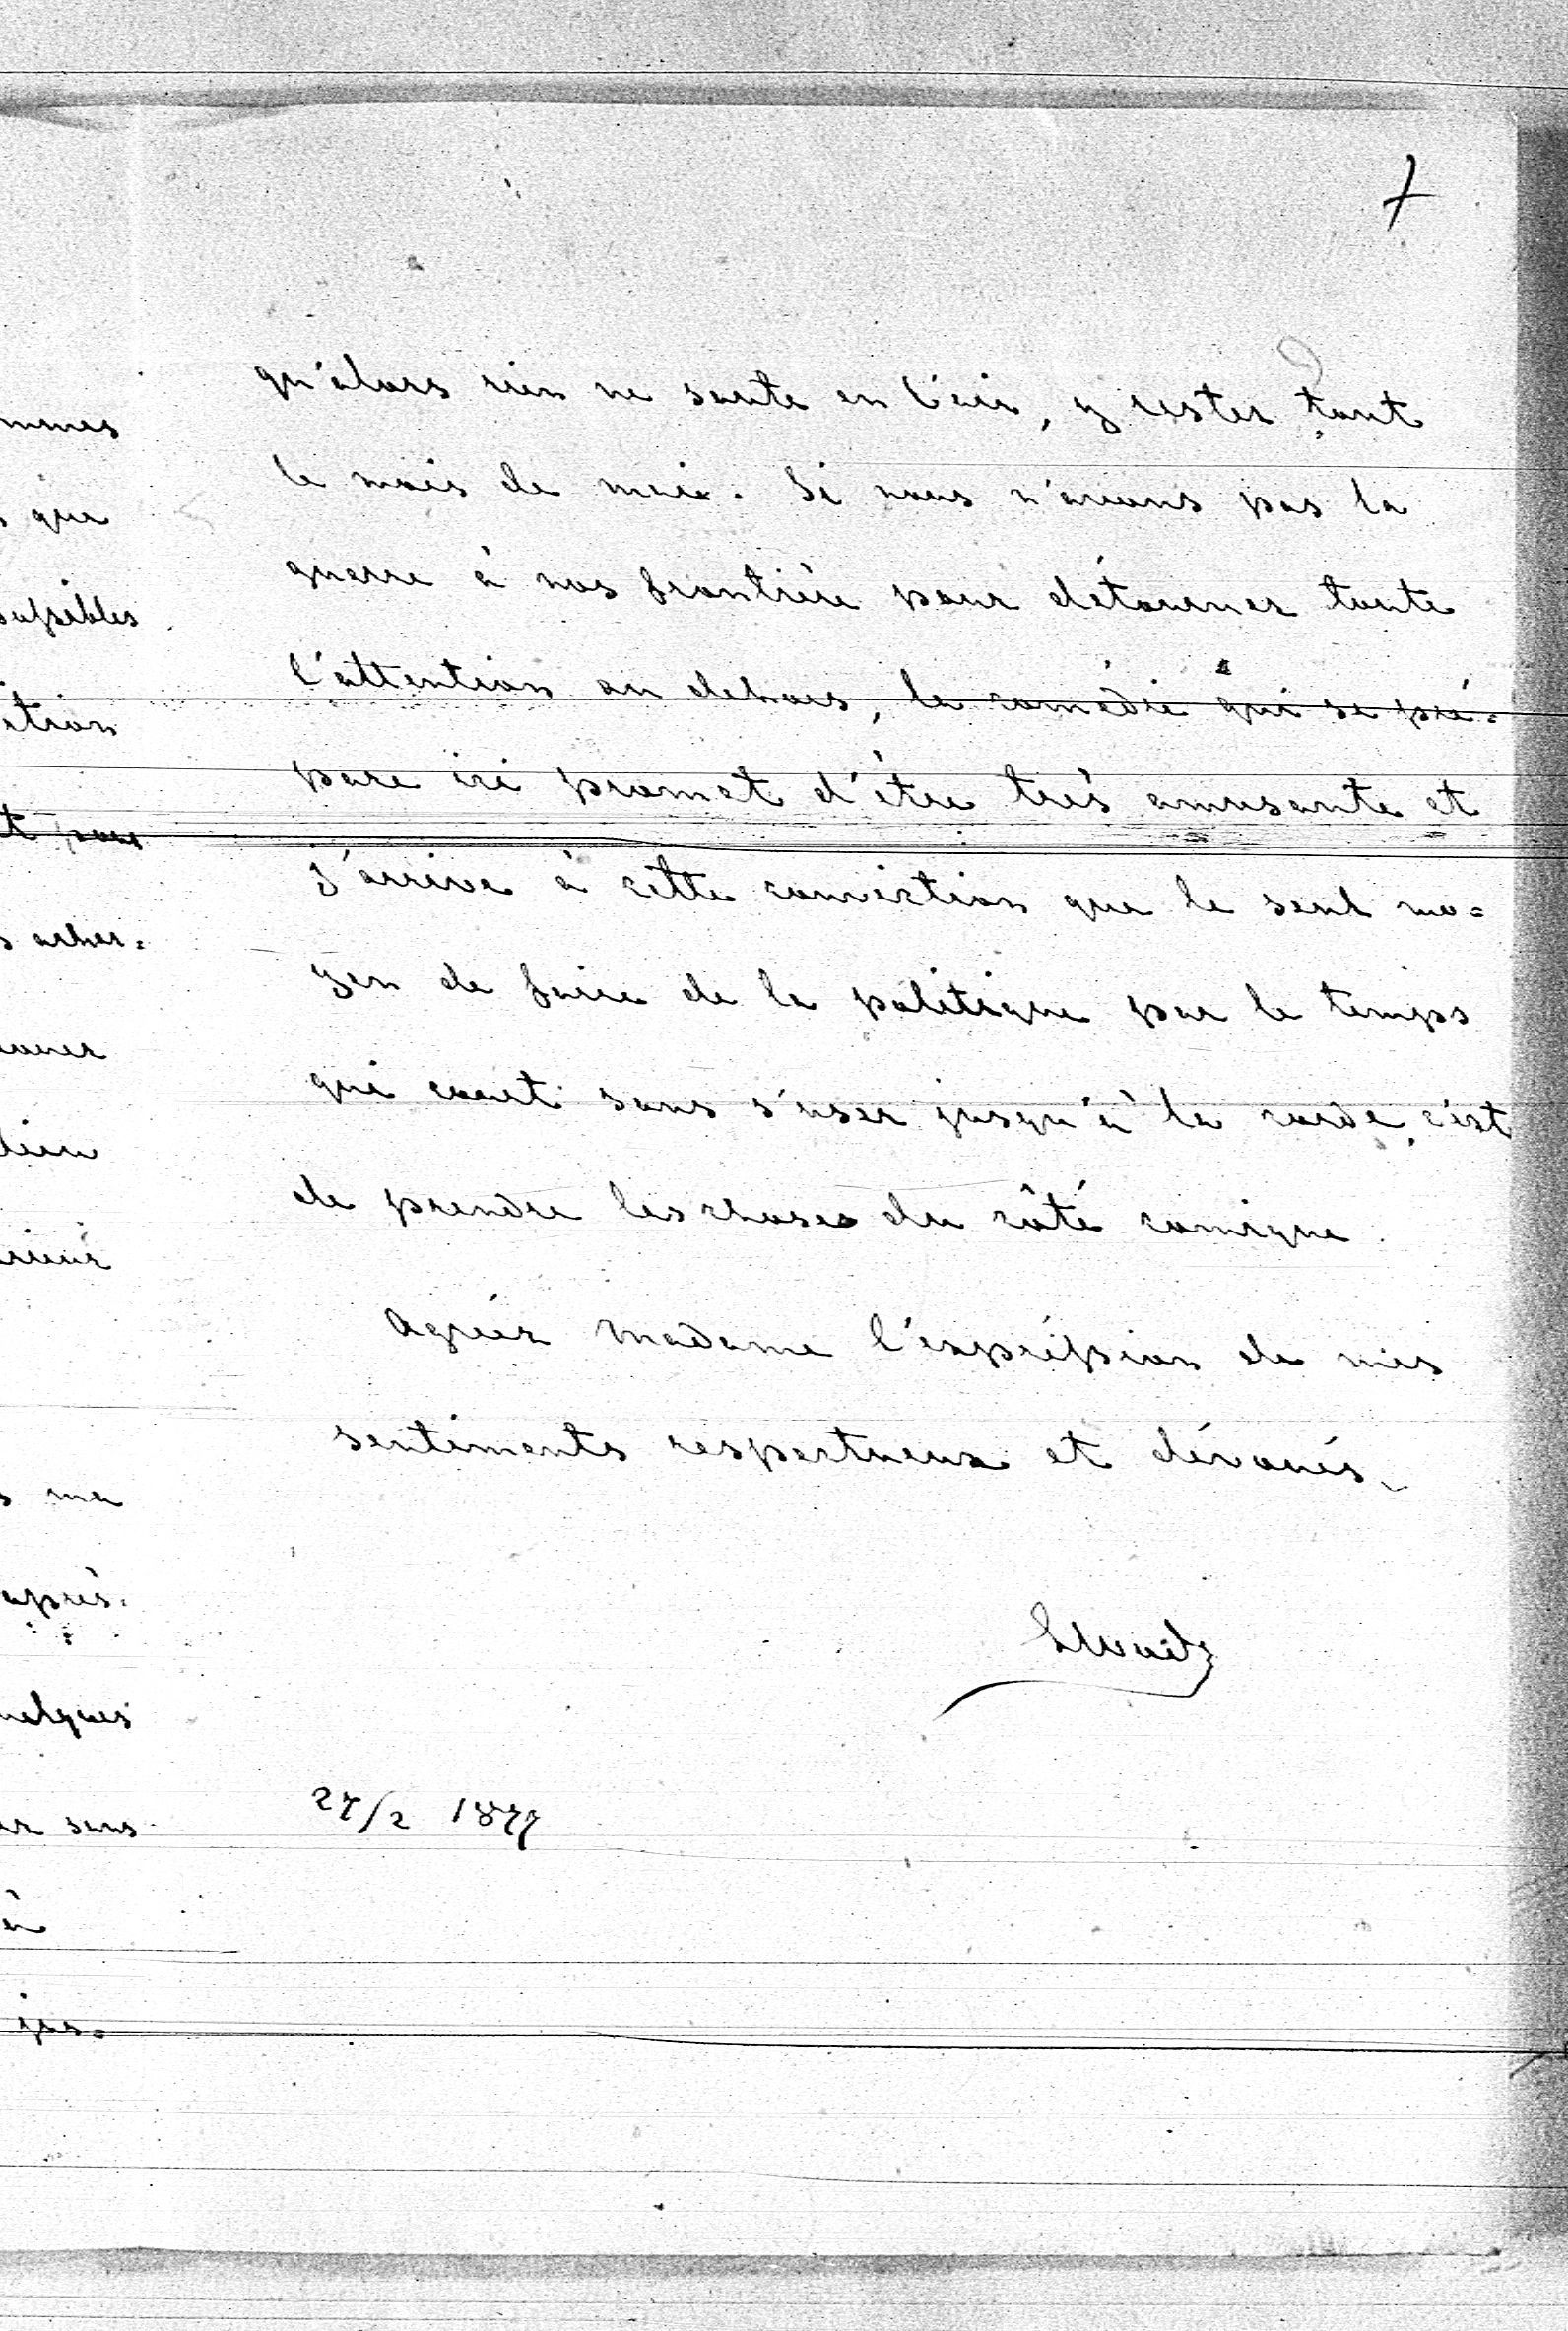 7
qu'alors rien ne saute en l'air, y rester tout
le mois de mai. Si nous n'avons pas la
guerre à nos frontière pour détourner toute
l'attention au dehors, la comédie qui se pré=
pare ici promet d'être très amusante et
j'arrive à cette conviction que le seul mo=
yen de faire de la politique par le temps
qui court sans s'user jusqu'à la corde, c'est
de prendre les choses du côté comique.
Agréez Madame l'expréssion de mes
sentiments respectueux et dévoués.
27/2 1877
mmes
que
ition
t pour
lien
rieur
s ma
après.
uelques
er sans
à
jus=